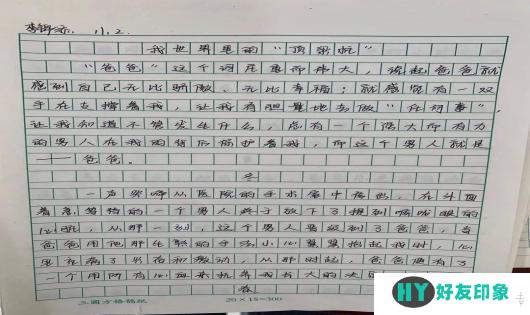 11.2.
我世界里的“顶梁柱”
“爸爸”这个词是重而伟大，谈起爸爸就
感到自己无比骄傲、无比幸福；就感觉有一双
手在支撑着我，让我有胆量地去做“任何事”，
让我知道不管发生什么，总有一个强大而有力
的男人在我的背后保护着我，而这个男人就是
——爸爸。
冬
一声哭啼从医院的手术室中传出，在外面
着急等待的一个男人终于放下了提到嗓眼的
心脏，从那一刻，这个男人晋级到了爸爸，当
爸爸用他那生疏的手法小心翼翼抱起我时，心
里充满了幸福和激动，从那时起，爸爸便有了
一个用所有心血来抚养我长大的决
春
20×15=300
HY 好友印象